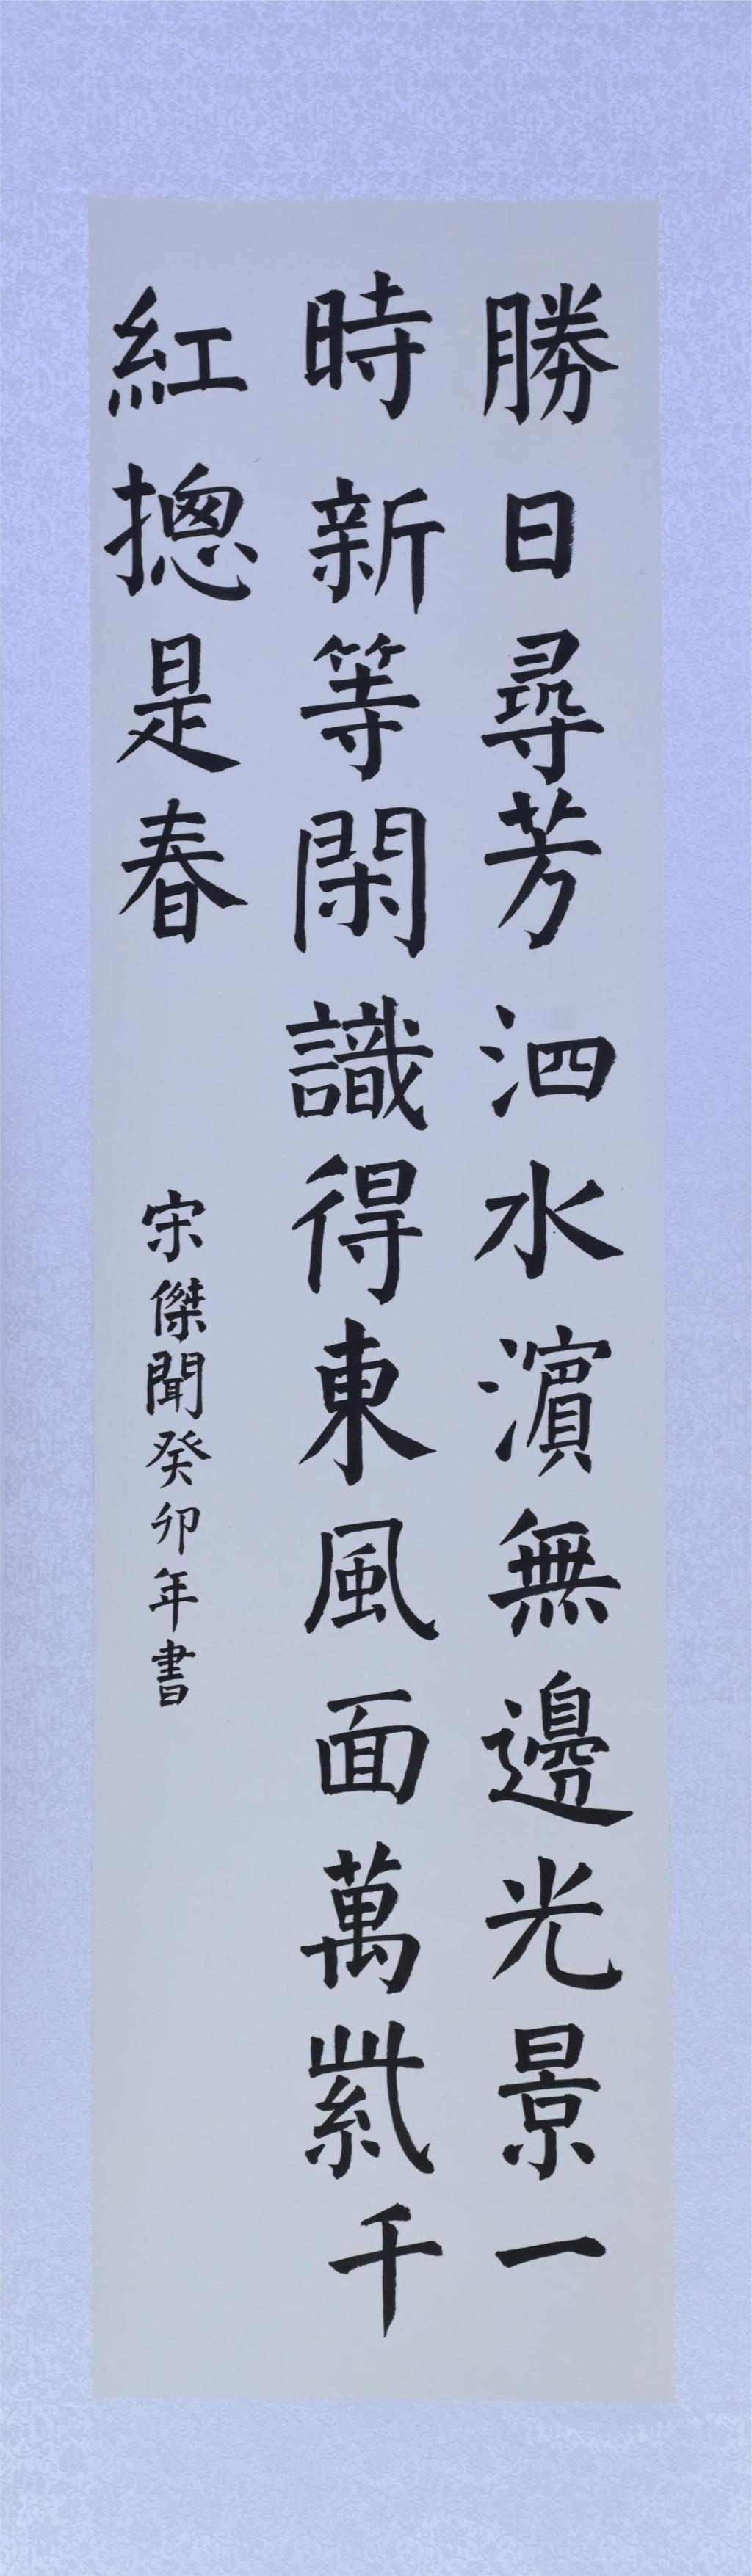 勝日尋芳泗水濵無邊光景一
時新等閑識得東風面萬紫千
紅摠是春
宋傑聞癸卯年書